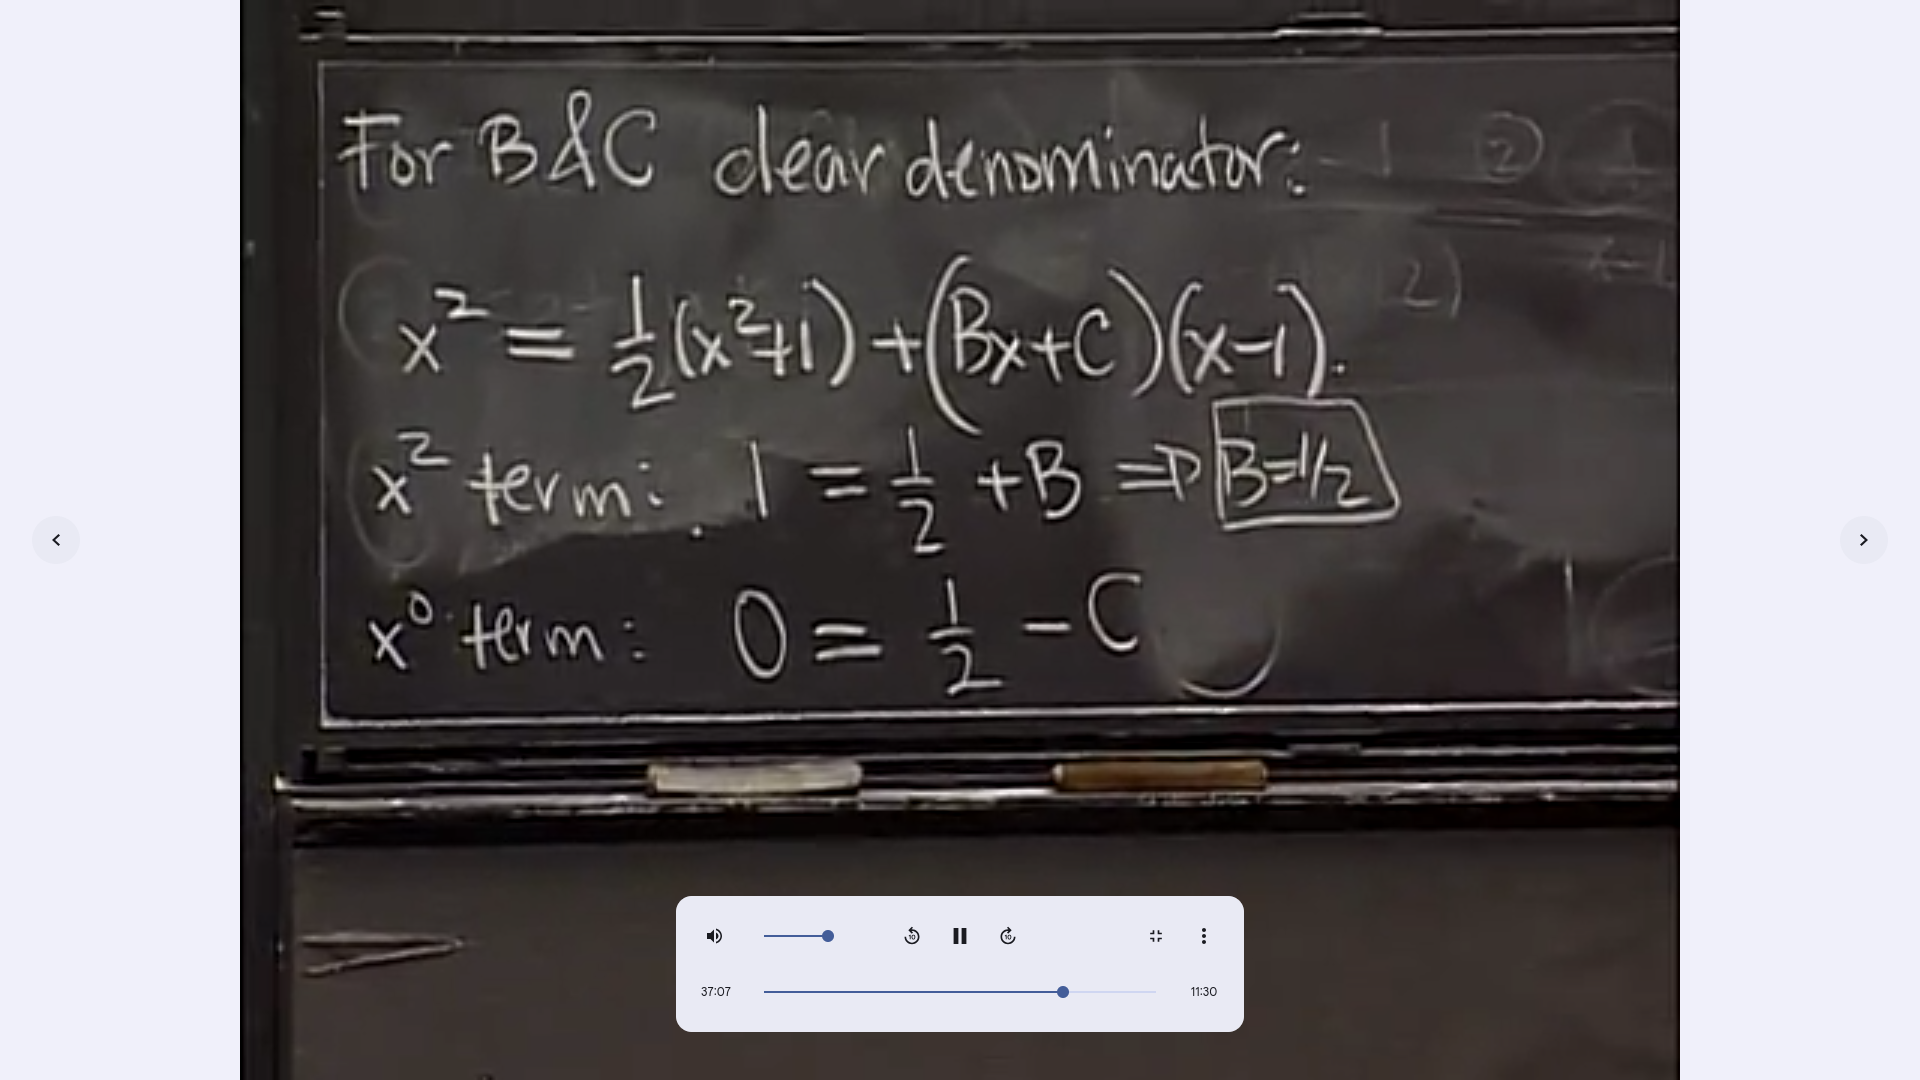 For B&C clear denominator:
x² = 1/2 (x²+1) + (Bx+C)(x-1).
x² term: 1 = 1/2 + B => B=1/2
x⁰ term: 0 = 1/2 - C
37:07
11:30